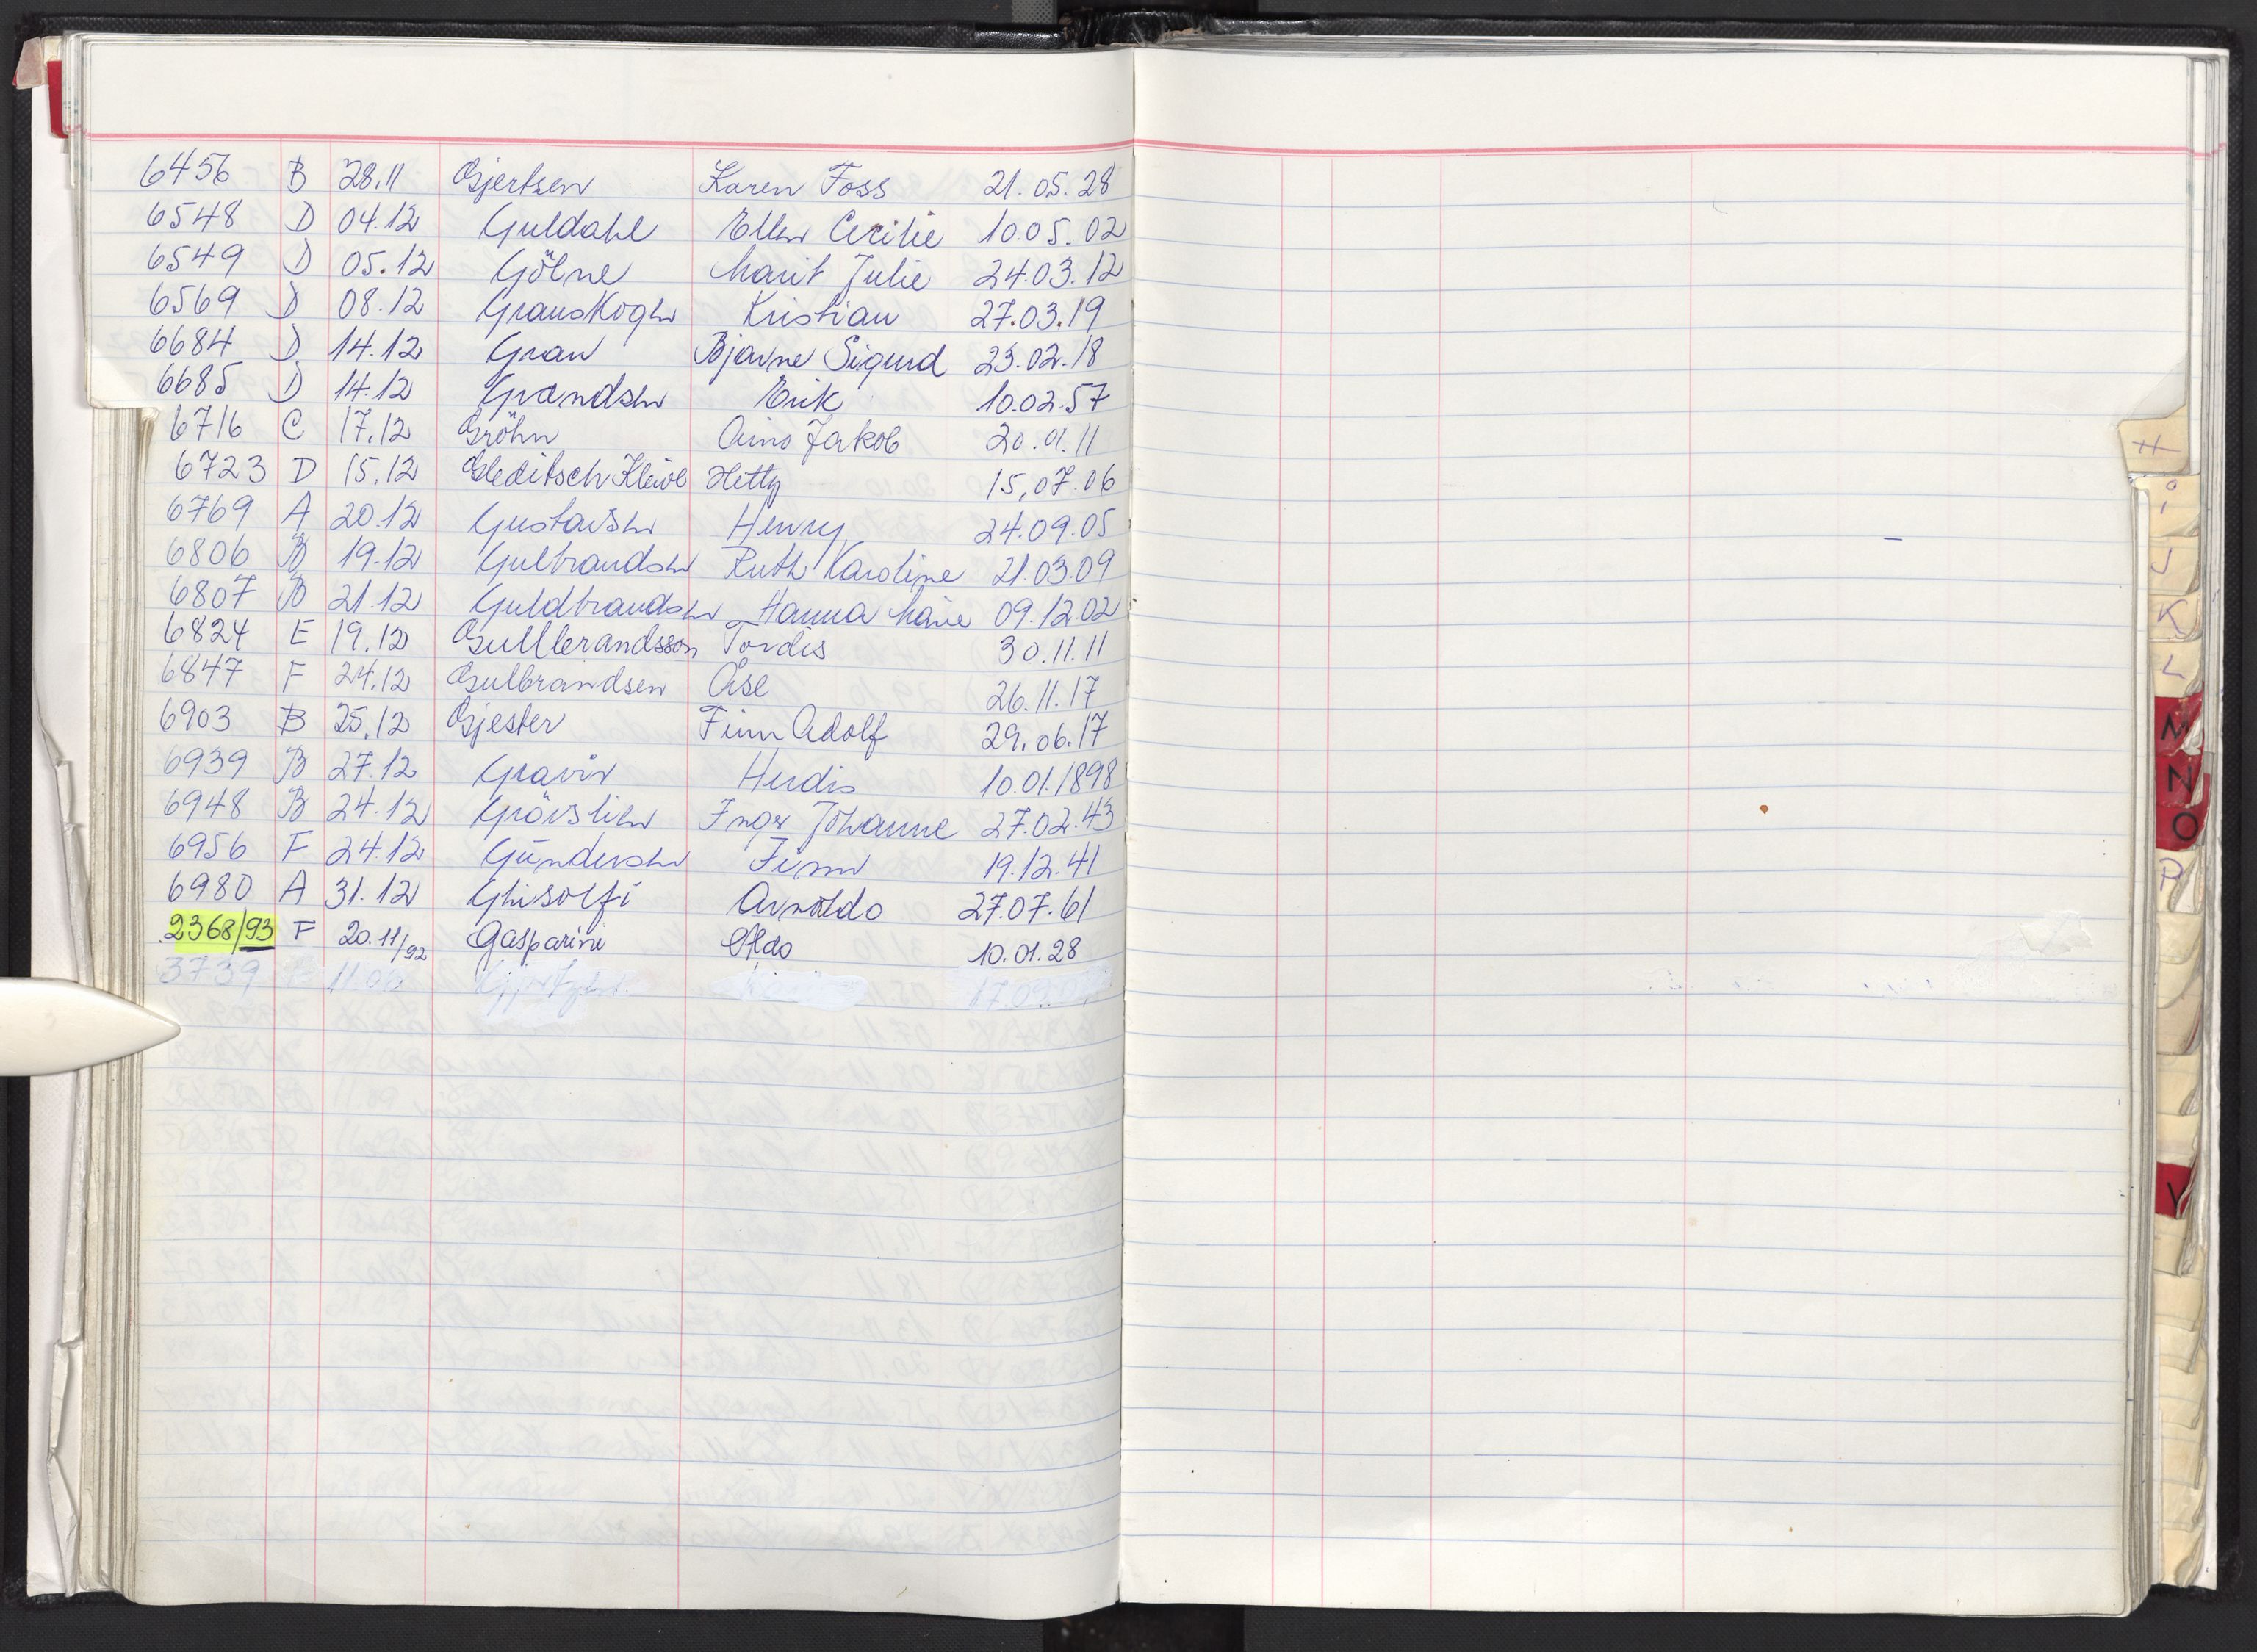 6456 B 28.11 Gjertsen Karen Foss 21.05.28
6548 D 04.12 Guldahl Ellen Cecilie 10.05.02
6549 D 05.12 Gölne Marit Julie 24.03.12
6569 D 08.12 Granskogen Kristian 27.03.19
6684 D 14.12 Gran Bjarne Sigurd 23.02.18
6685 D 14.12 Grandsen Erik 10.02.57
6716 C 17.12 Gröhn Aino Jakob 20.01.11
6723 D 15.12 Gleditsch Kleive Hetty 15.07.06
6769 A 20.12 Gustavsen Henry 24.09.05
6806 B 19.12 Gulbrandsen Ruth Karoline 21.03.09
6807 B 21.12 Guldbrandsen Hanna Marie 09.12.02
6824 E 19.12 Gullbrandsson Tordis 30.11.11
6847 F 24.12 Gulbrandsen Åse 26.11.17
6903 B 25.12 Gjester Finn Adolf 29.06.17
6939 B 27.12 Gravir Herdis 10.01.1898
6948 B 24.12 Grövslien Inger Johanne 27.02.43
6956 F 24.12 Gundersen Finn 19.12.41
6980 A 31.12 Ghisolfi Arnoldo 27.07.61
2368/93 F 20.11/92 Gasparini Aldo 10.01.28
3739 11.06
H
i
J
K
L
M
N
O
P
V